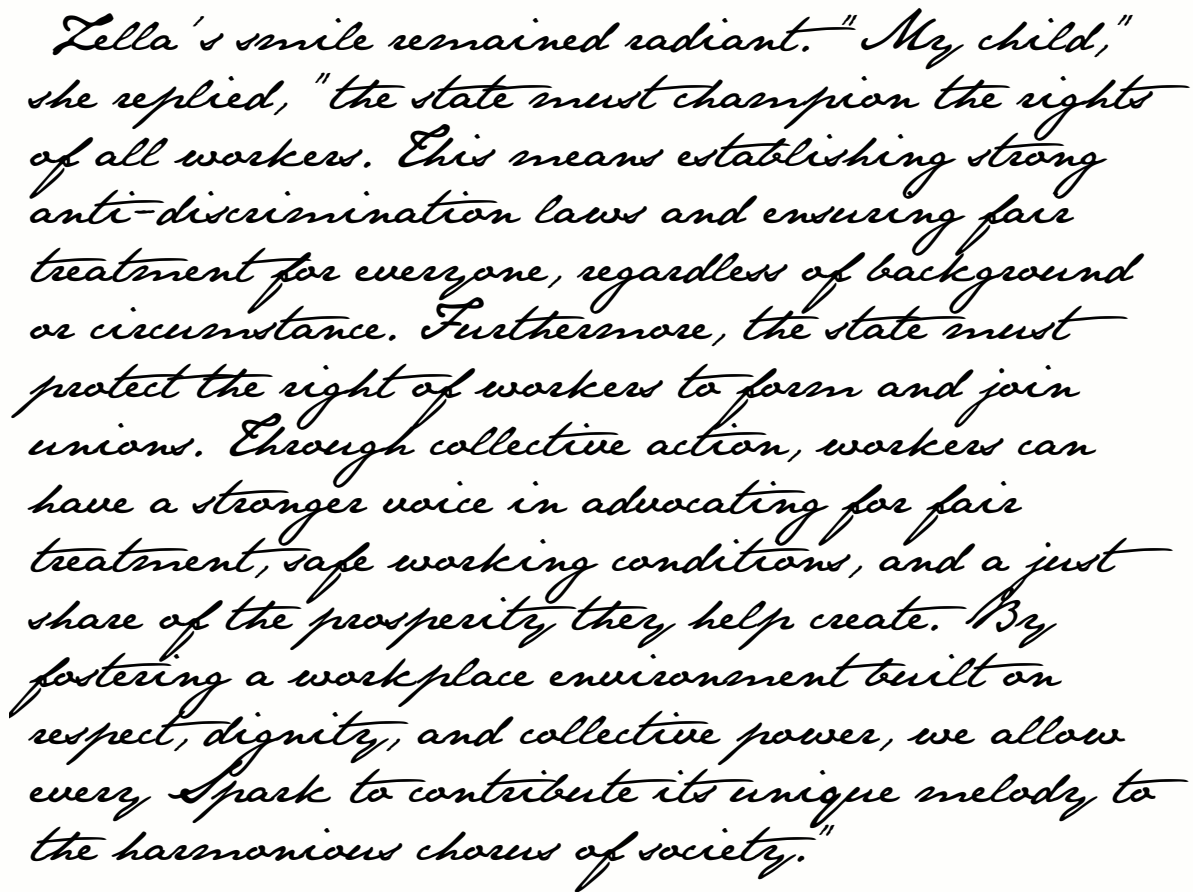 Zella's smile remained radiant." My child,"
she replied, "the state must champion the rights
of all workers. This means establishing strong
anti-discrimination laws and ensuring fair
treatment for everyone, regardless of background
or circumstance. Furthermore, the state must
protect the right of workers to form and join
unions. Through collective action, workers can
have a stronger voice in advocating for fair
treatment, safe working conditions, and a just
share of the prosperity they help create. By
fostering a workplace environment built on
respect, dignity, and collective power, we allow
every Spark to contribute its unique melody to
the harmonious chorus of society."